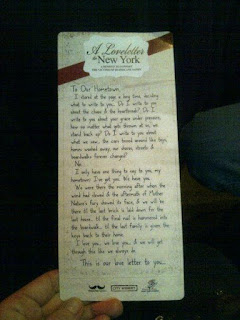 A Loveletter
to New York
To Our Hometown,
I stared at the page a long time, deciding
what to write to you. Do I write to you
about the chaos & the heartbreak? Do I
write to you about your grace under pressure,
how no matter what gets thrown at us, we
stand back up? Do I write to you about
what we saw, the cars tossed around like toys,
homes washed away, our shores, streets &
boardwalks forever changed?
No.
I only have one thing to say to you my
hometown: I've got you. We have you.
We were there the morning after when the
wind had slowed & the aftermath of Mother
Nature's fury showed its face, & we will be
there til the last brick is laid down for the
last home, til the final nail is hammered into
the boardwalk, til the last family is given the
keys back to their home.
I love you, we love you, & we will get
through this like we always do.
This is our love letter to you...
CITY WINERY